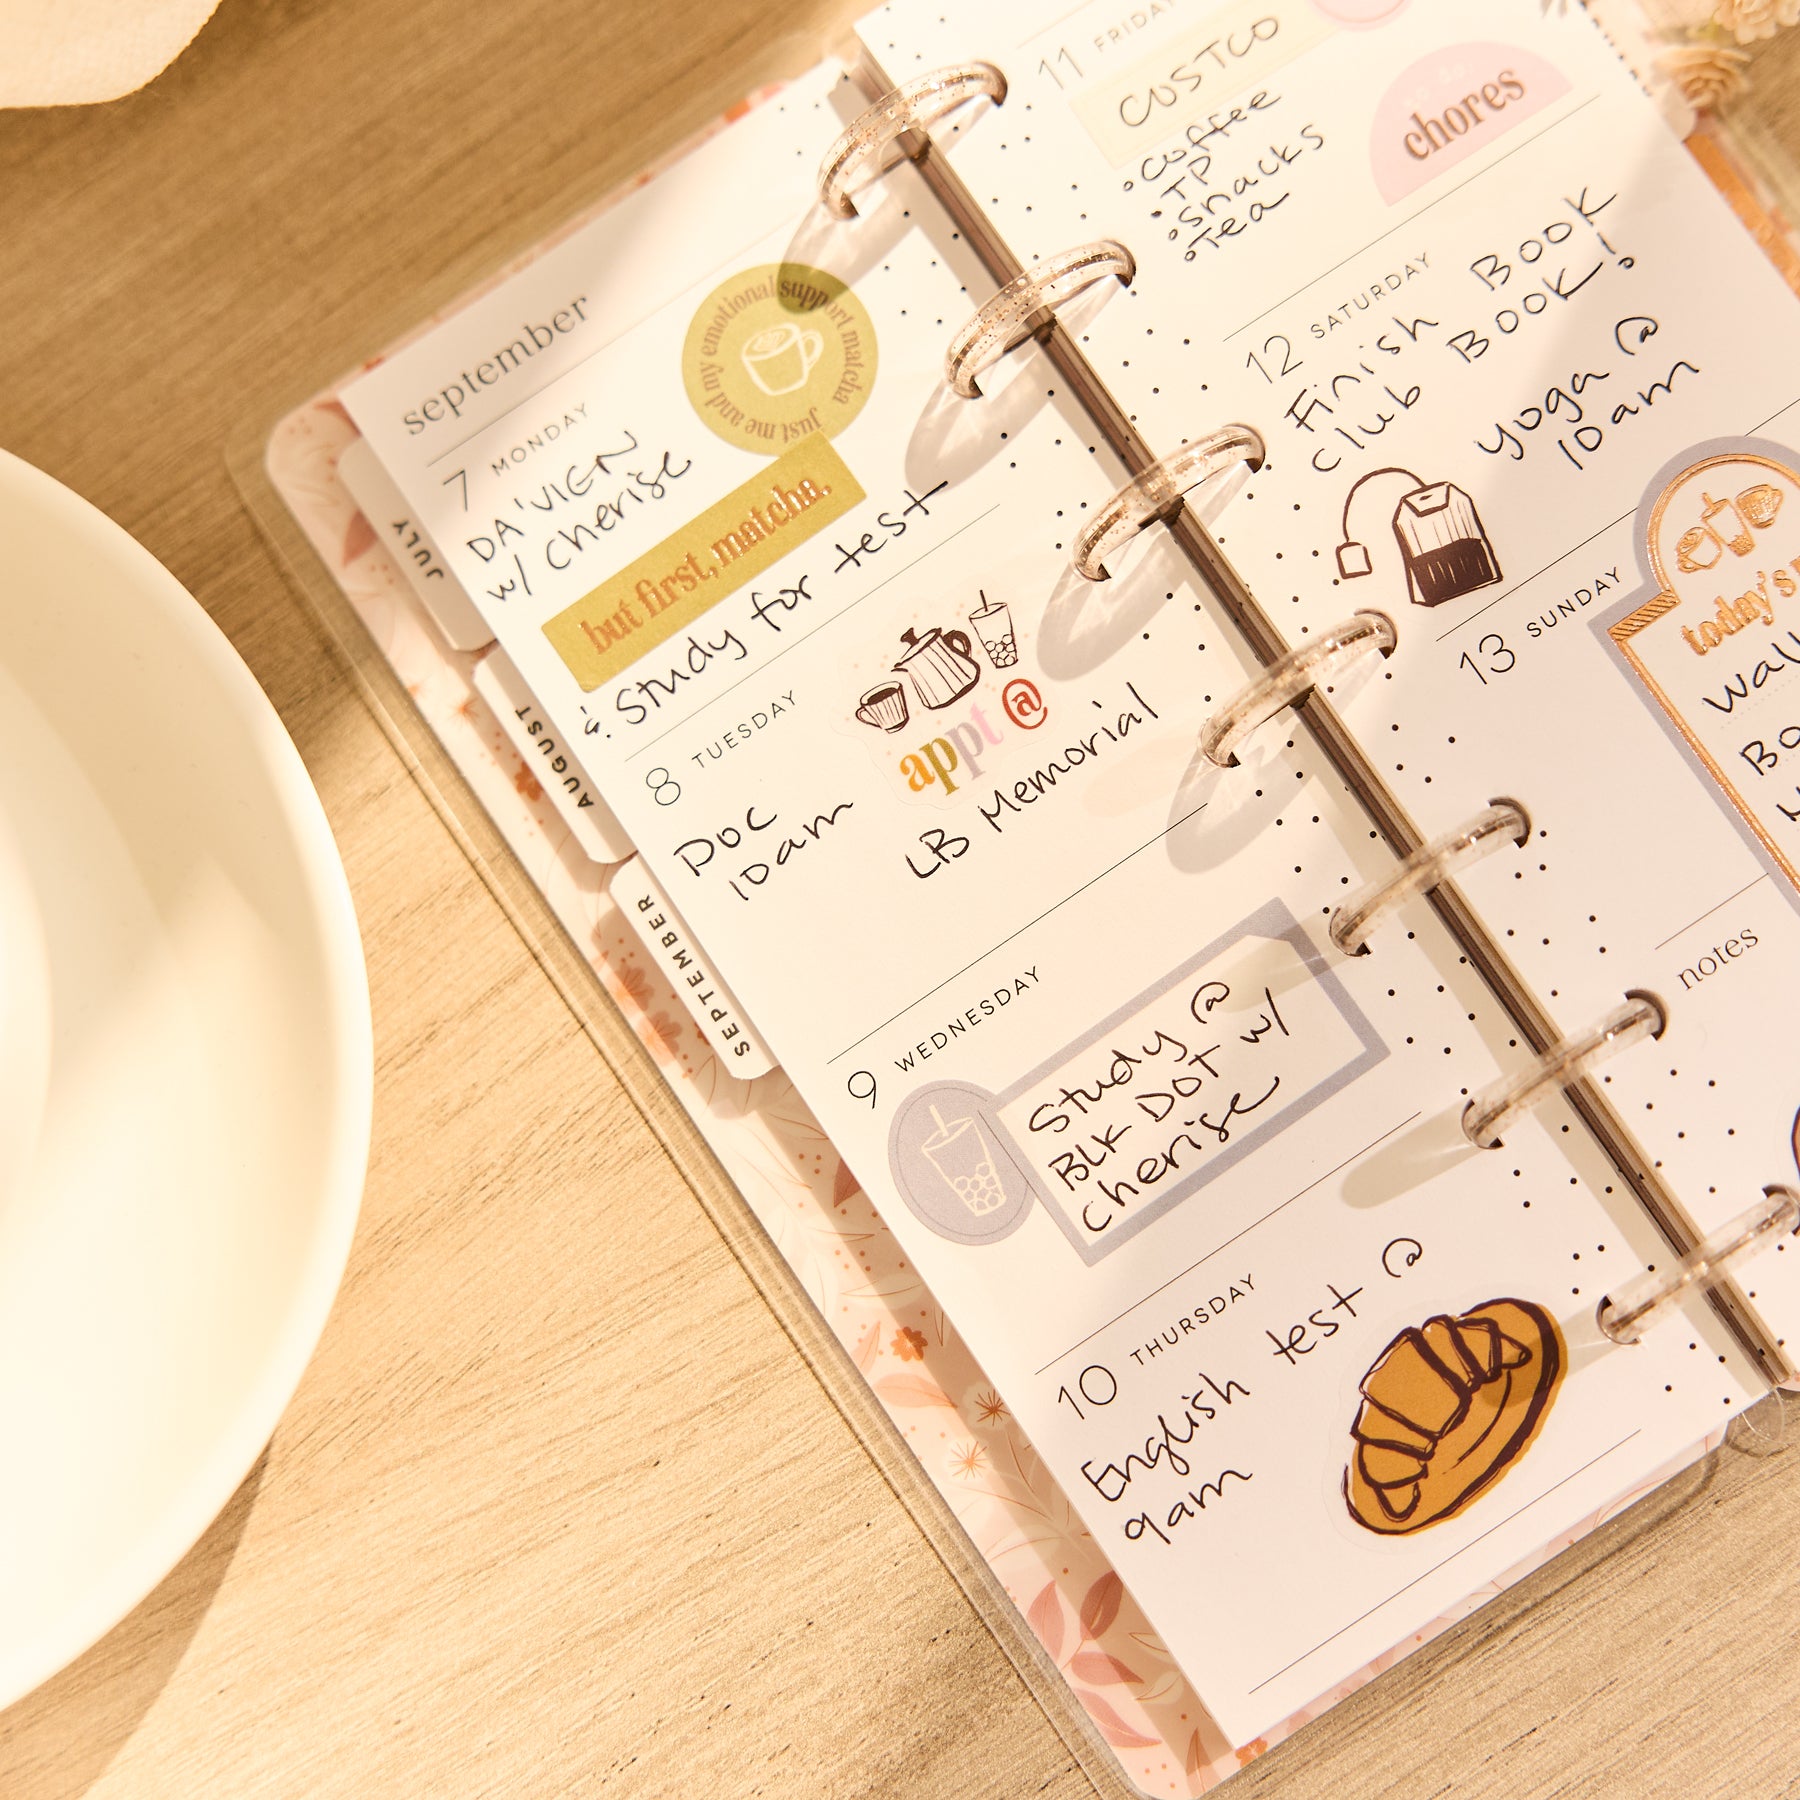 september
7 MONDAY
DA'VIEN
w/ Cherise
just me and my emotional support matcha
but first, matcha.
& Study for test
8 TUESDAY
Doc
10am
appt @
LB Memorial
9 WEDNESDAY
Study @
BLK DOT w/
Cherise
10 THURSDAY
English test @
9am
JULY
AUGUST
SEPTEMBER
11 FRIDAY
COSTCO
• Coffee
• TP
• Snacks
• Tea
chores
12 SATURDAY
Finish BOOK
club BOOK!
yoga @
10am
13 SUNDAY
today's
notes